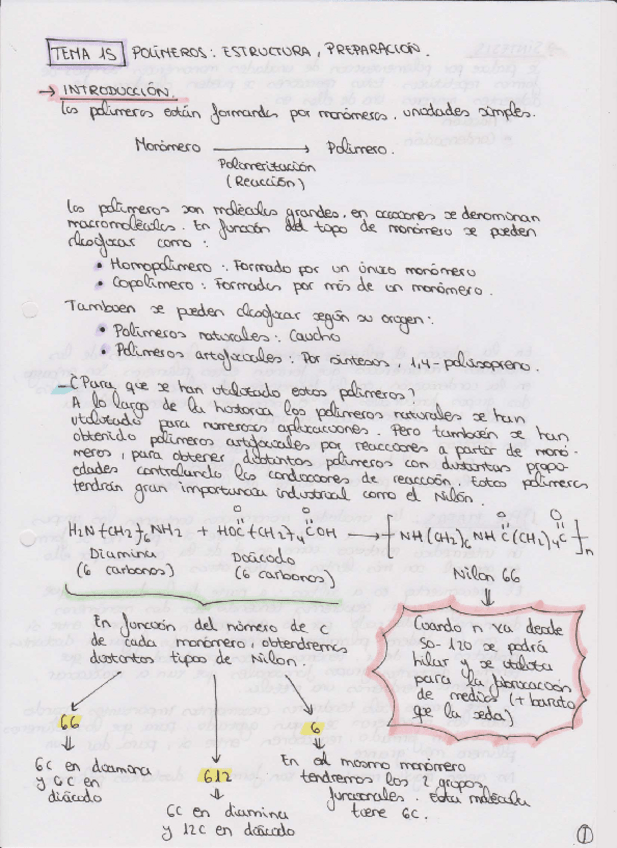 TEMA 15 POLÍMEROS: ESTRUCTURA, PREPARACIÓN.
→ INTRODUCCIÓN.
Los polímeros están formados por monómeros, unidades simples.
Monómero → Polímero.
Polimerización
(Reacción)
Los polímeros son moléculas grandes, en ocasiones se denominan
macromoléculas. En función del tipo de monómero se pueden
clasificar como:
• Homopolímero: Formado por un único monómero
• Copolímero: Formados por más de un monómero.
También se pueden clasificar según su origen:
• Polímeros naturales: Caucho
• Polímeros artificiales: Por síntesis, 1,4 poliisopreno.
- ¿Para que se han utilizado estos polímeros?
A lo largo de la historia los polímeros naturales se han
utilizado para numerosas aplicaciones. Pero también se han
obtenido polímeros artificiales por reacciones a partir de monó-
meros, para obtener distintos polímeros con distintas propi-
edades controlando las condiciones de reacción. Estos polímeros
tendrán gran importancia industrial como el Nilón.
O O O O
H₂N-(CH₂)₆NH₂ + HOC-(CH₂)₄COH → [NH(CH₂)₆NHC(CH₂)₄C]n
Diamina Diácido
(6 carbonos) (6 carbonos) Nilon 66
En función del número de C
de cada monómero, obtendremos
distintos tipos de Nilon.
Cuando n va desde
50-120 se podrá
hilar y se utiliza
para la fabricación
de medias (+ barato
que la seda)
66
612
6
6C en diamina
y 6C en
diácido
6C en diamina
y 12C en diácido
En el mismo monómero
tendremos los 2 grupos
funcionales. Esta molécula
tiene 6C.
1